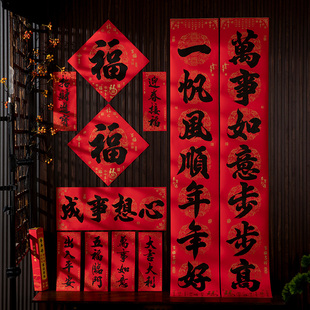 萬事如意步步高
一帆風順年年好
福
福
迎春接福
心想事成
大吉大利
萬事如意
五福臨門
出入平安